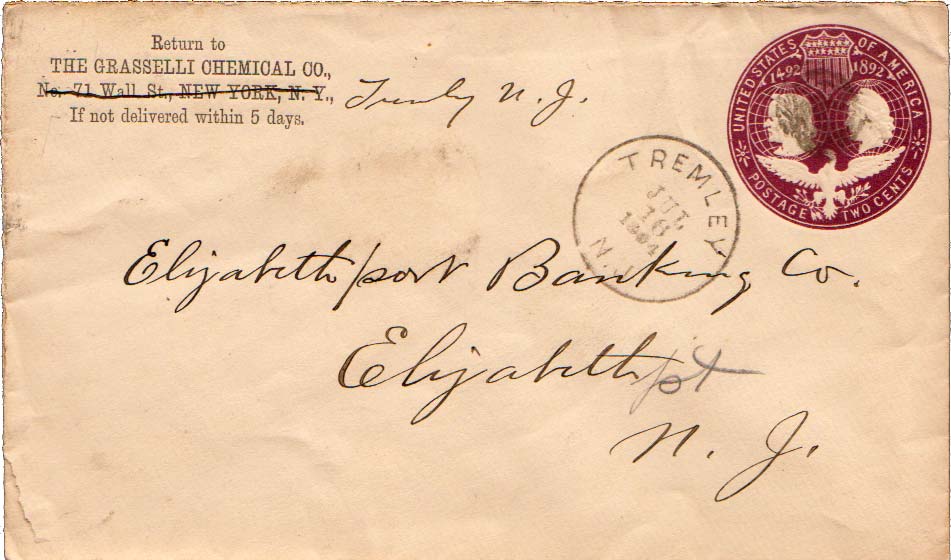 Return to
THE GRASSELLI CHEMICAL CO.,
No. 71 Wall St., NEW YORK, N. Y.,
If not delivered within 5 days.
Tremley N. J.
UNITED STATES OF AMERICA
1492 1892
POSTAGE TWO CENTS
TREMLEY
JUL
16
1894
N.J.
Elizabethport Banking Co.
Elizabethpt
N. J.